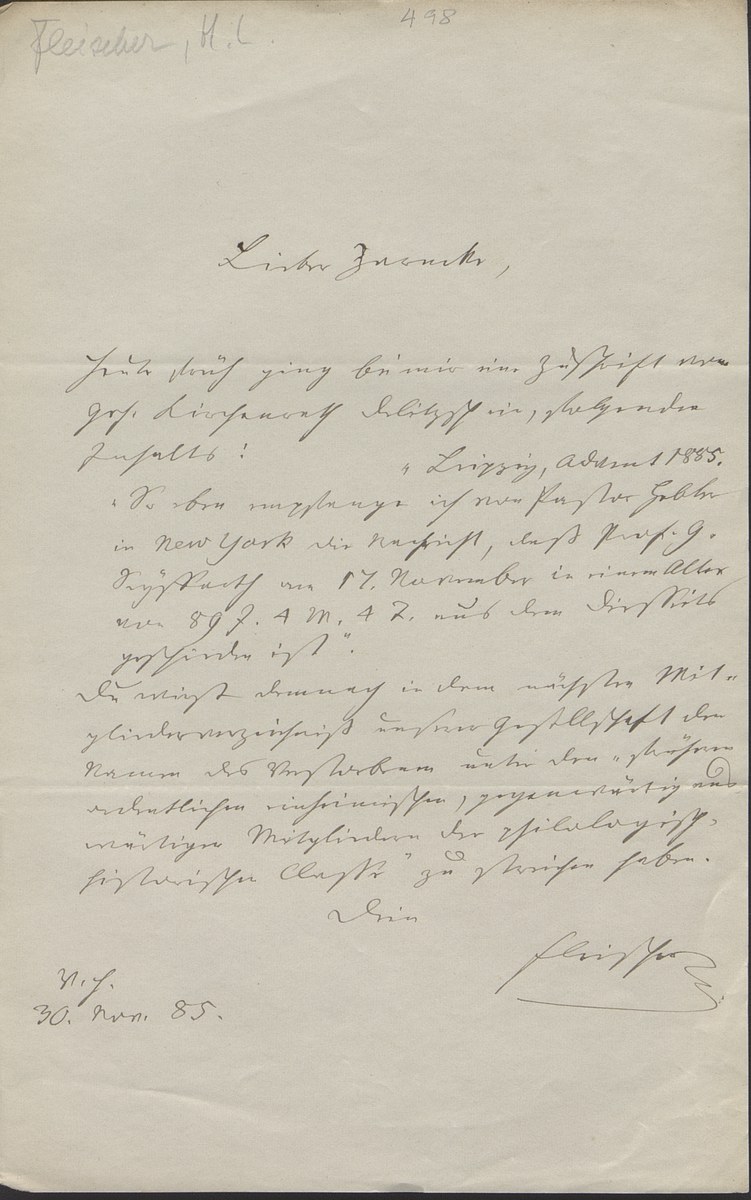 Fleischer, H. L.
498
Lieber Zarncke,
Heute früh ging bei mir eine Zuschrift von
Geh. Kirchenrath Delitzsch ein, folgenden
Inhalts:
"Leipzig, Advent 1885.
"So eben empfange ich von Pastor
in New York die Nachricht, daß Prof. G.
Seyffarth am 17. November in einem Alter
von 89 J. 4 M. 4 T. aus dem Diesseits
geschieden ist".
Du wirst demnach in dem nächsten Mit-
gliederverzeichniß unserer Gesellschaft den
Namen des Verstorbenen unter den "früheren
ordentlichen einheimischen, gegenwärtig aus-
wärtigen Mitgliedern der philologisch-
historischen Classe" zu streichen haben.
Dein
Fleischer
V. H.
30. Nov. 85.